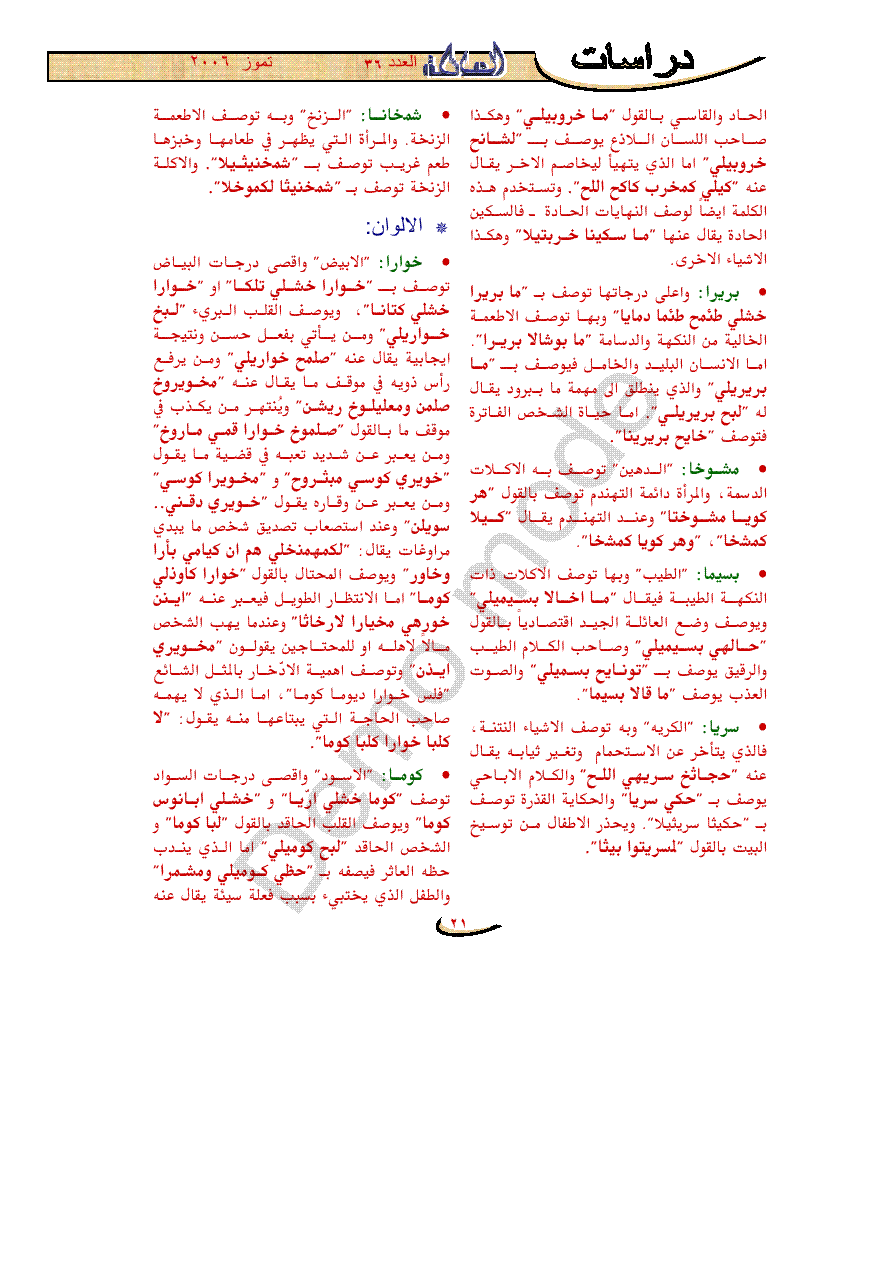 دراسات
العدد ٣٦
تموز ٢٠٠٦
الحاد والقاسي بالقول "ما خروبيلي" وهكذا
صاحب اللسان اللاذع يوصف بـ "لشانح
خروبيلي" اما الذي يتهيأ ليخاصم الاخر يقال
عنه "كيلي كمخرب كاكح اللح". وتستخدم هذه
الكلمة ايضاً لوصف النهايات الحادة ـ فالسكين
الحادة يقال عنها "ما سكينا خربتيلا" وهكذا
الاشياء الاخرى.
• بريرا: واعلى درجاتها توصف بـ "ما بريرا
خشلي طئمح طئما دمايا" وبها توصف الاطعمة
الخالية من النكهة والدسامة "ما بوشالا بريرا".
اما الانسان البليد والخامل فيوصف بـ "ما
بريريلي" والذي ينطلق الى مهمة ما ببرود يقال
له "لبح بريريلي". اما حياة الشخص الفاترة
فتوصف "خايح بريرينا".
• مشوخا: "الدهين" توصف به الاكلات
الدسمة، والمرأة دائمة التهندم توصف بالقول "هر
كويا مشوختا" وعند التهندم يقال "كيلا
كمشخا"، "وهر كويا كمشخا".
• بسيما: "الطيب" وبها توصف الاكلات ذات
النكهة الطيبة فيقال "ما اخالا بسيميلي"
ويوصف وضع العائلة الجيد اقتصادياً بالقول
"حالهي بسيميلي" وصاحب الكلام الطيب
والرقيق يوصف بـ "تونايح بسميلي" والصوت
العذب يوصف "ما قالا بسيما".
• سريا: "الكريه" وبه توصف الاشياء النتنة،
فالذي يتأخر عن الاستحمام وتغير ثيابه يقال
عنه "حجاثخ سريهي اللح" والكلام الاباحي
يوصف بـ "حكي سريا" والحكاية القذرة توصف
بـ "حكيثا سريثيلا". ويحذر الاطفال من توسيخ
البيت بالقول "لمسريتوا بيثا".
• شمخانا: "الزنخ" وبه توصف الاطعمة
الزنخة. والمرأة التي يظهر في طعامها وخبزها
طعم غريب توصف بـ "شمخنيثيلا". والاكلة
الزنخة توصف بـ "شمخنيثا لكموخلا".
* الالوان:
• خوارا: "الابيض" واقصى درجات البياض
توصف بـ "خوارا خشلي تلكا" او "خوارا
خشلي كتانا"، ويوصف القلب البريء "لبخ
خواريلي" ومن يأتي بفعل حسن ونتيجة
ايجابية يقال عنه "صلمح خواريلي" ومن يرفع
رأس ذويه في موقف ما يقال عنه "مخويروخ
صلمن ومعليلوخ ريشن" ويُنتهر من يكذب في
موقف ما بالقول "صلموخ خوارا قمي ماروخ"
ومن يعبر عن شديد تعبه في قضية ما يقول
"خويري كوسي مبثروح" و "مخويرا كوسي"
ومن يعبر عن وقاره يقول "خويري دقني..
سويلن" وعند استصعاب تصديق شخص ما يبدي
مراوغات يقال: "لكمهمنخلي هم ان كيامي بأرا
وخاور" ويوصف المحتال بالقول "خوارا كاوذلي
كوما" اما الانتظار الطويل فيعبر عنه "ايذن
خورهي مخيارا لارخاثا" وعندما يهب الشخص
مالاً لاهله او للمحتاجين يقولون "مخويري
ايذن" وتوصف اهمية الادّخار بالمثل الشائع
"فلس خوارا ديوما كوما"، اما الذي لا يهمه
صاحب الحاجة التي يبتاعها منه يقول: "لا
كلبا خوارا كلبا كوما".
• كوما: "الاسود" واقصى درجات السواد
توصف "كوما خشلي ازّيا" و "خشلي ابانوس
كوما" ويوصف القلب الحاقد بالقول "لبا كوما" و
الشخص الحاقد "لبح كوميلي" اما الذي يندب
حظه العاثر فيصفه بـ "حظي كوميلي ومشمرا"
والطفل الذي يختبيء بسبب فعلة سيئة يقال عنه
٢١
Demo mode